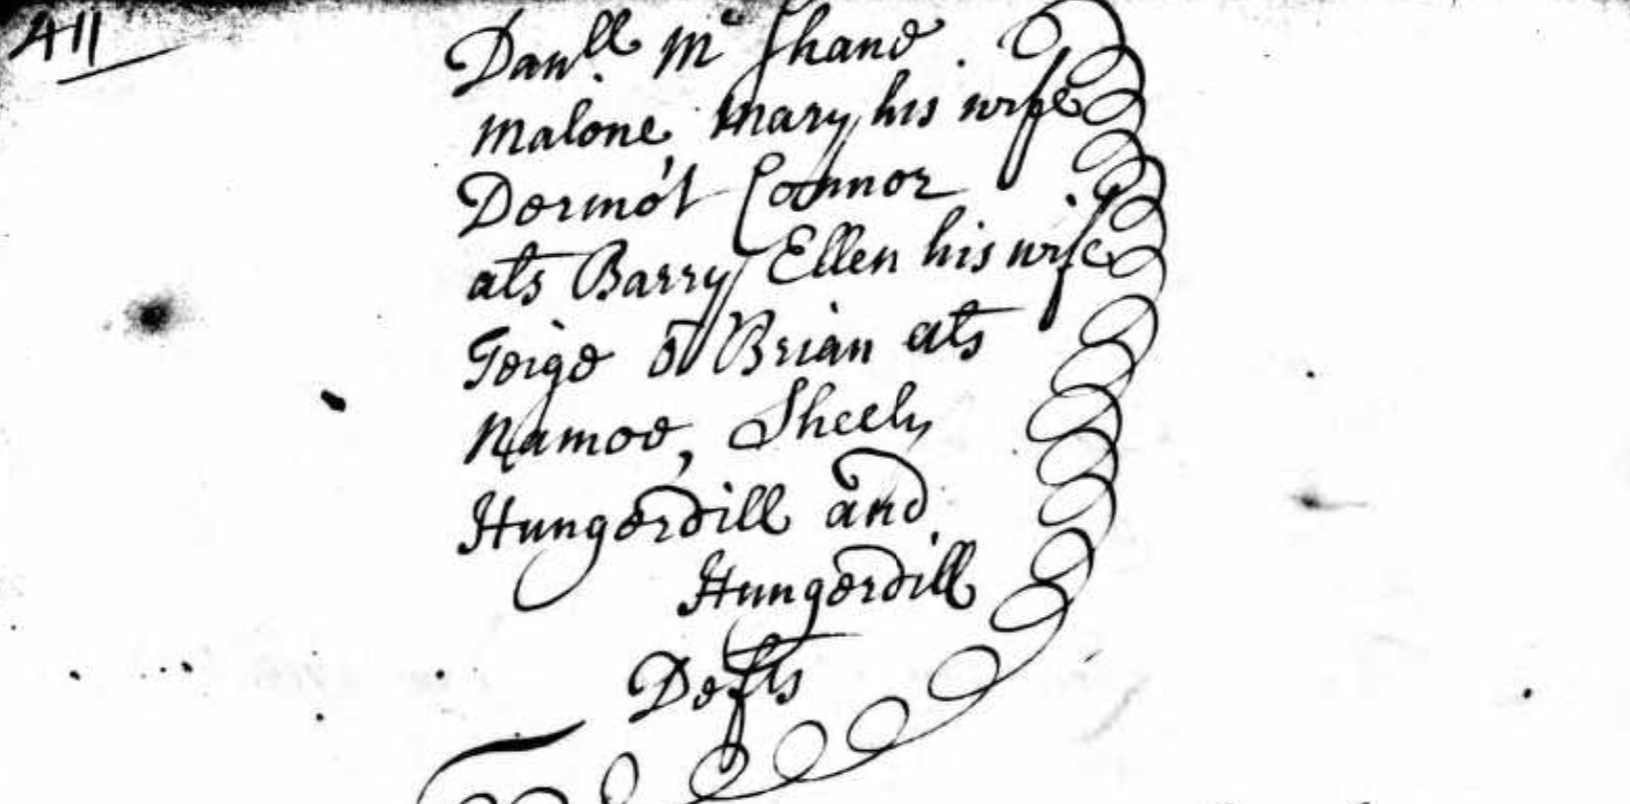 411
Dan^ll Mc Shane
Malone Mary his wife
Dermot Connor
als Barry Ellen his wife
Teige ô Brian als
Namoe, Sheely
Hungerdill and
Hungerdill
Defts